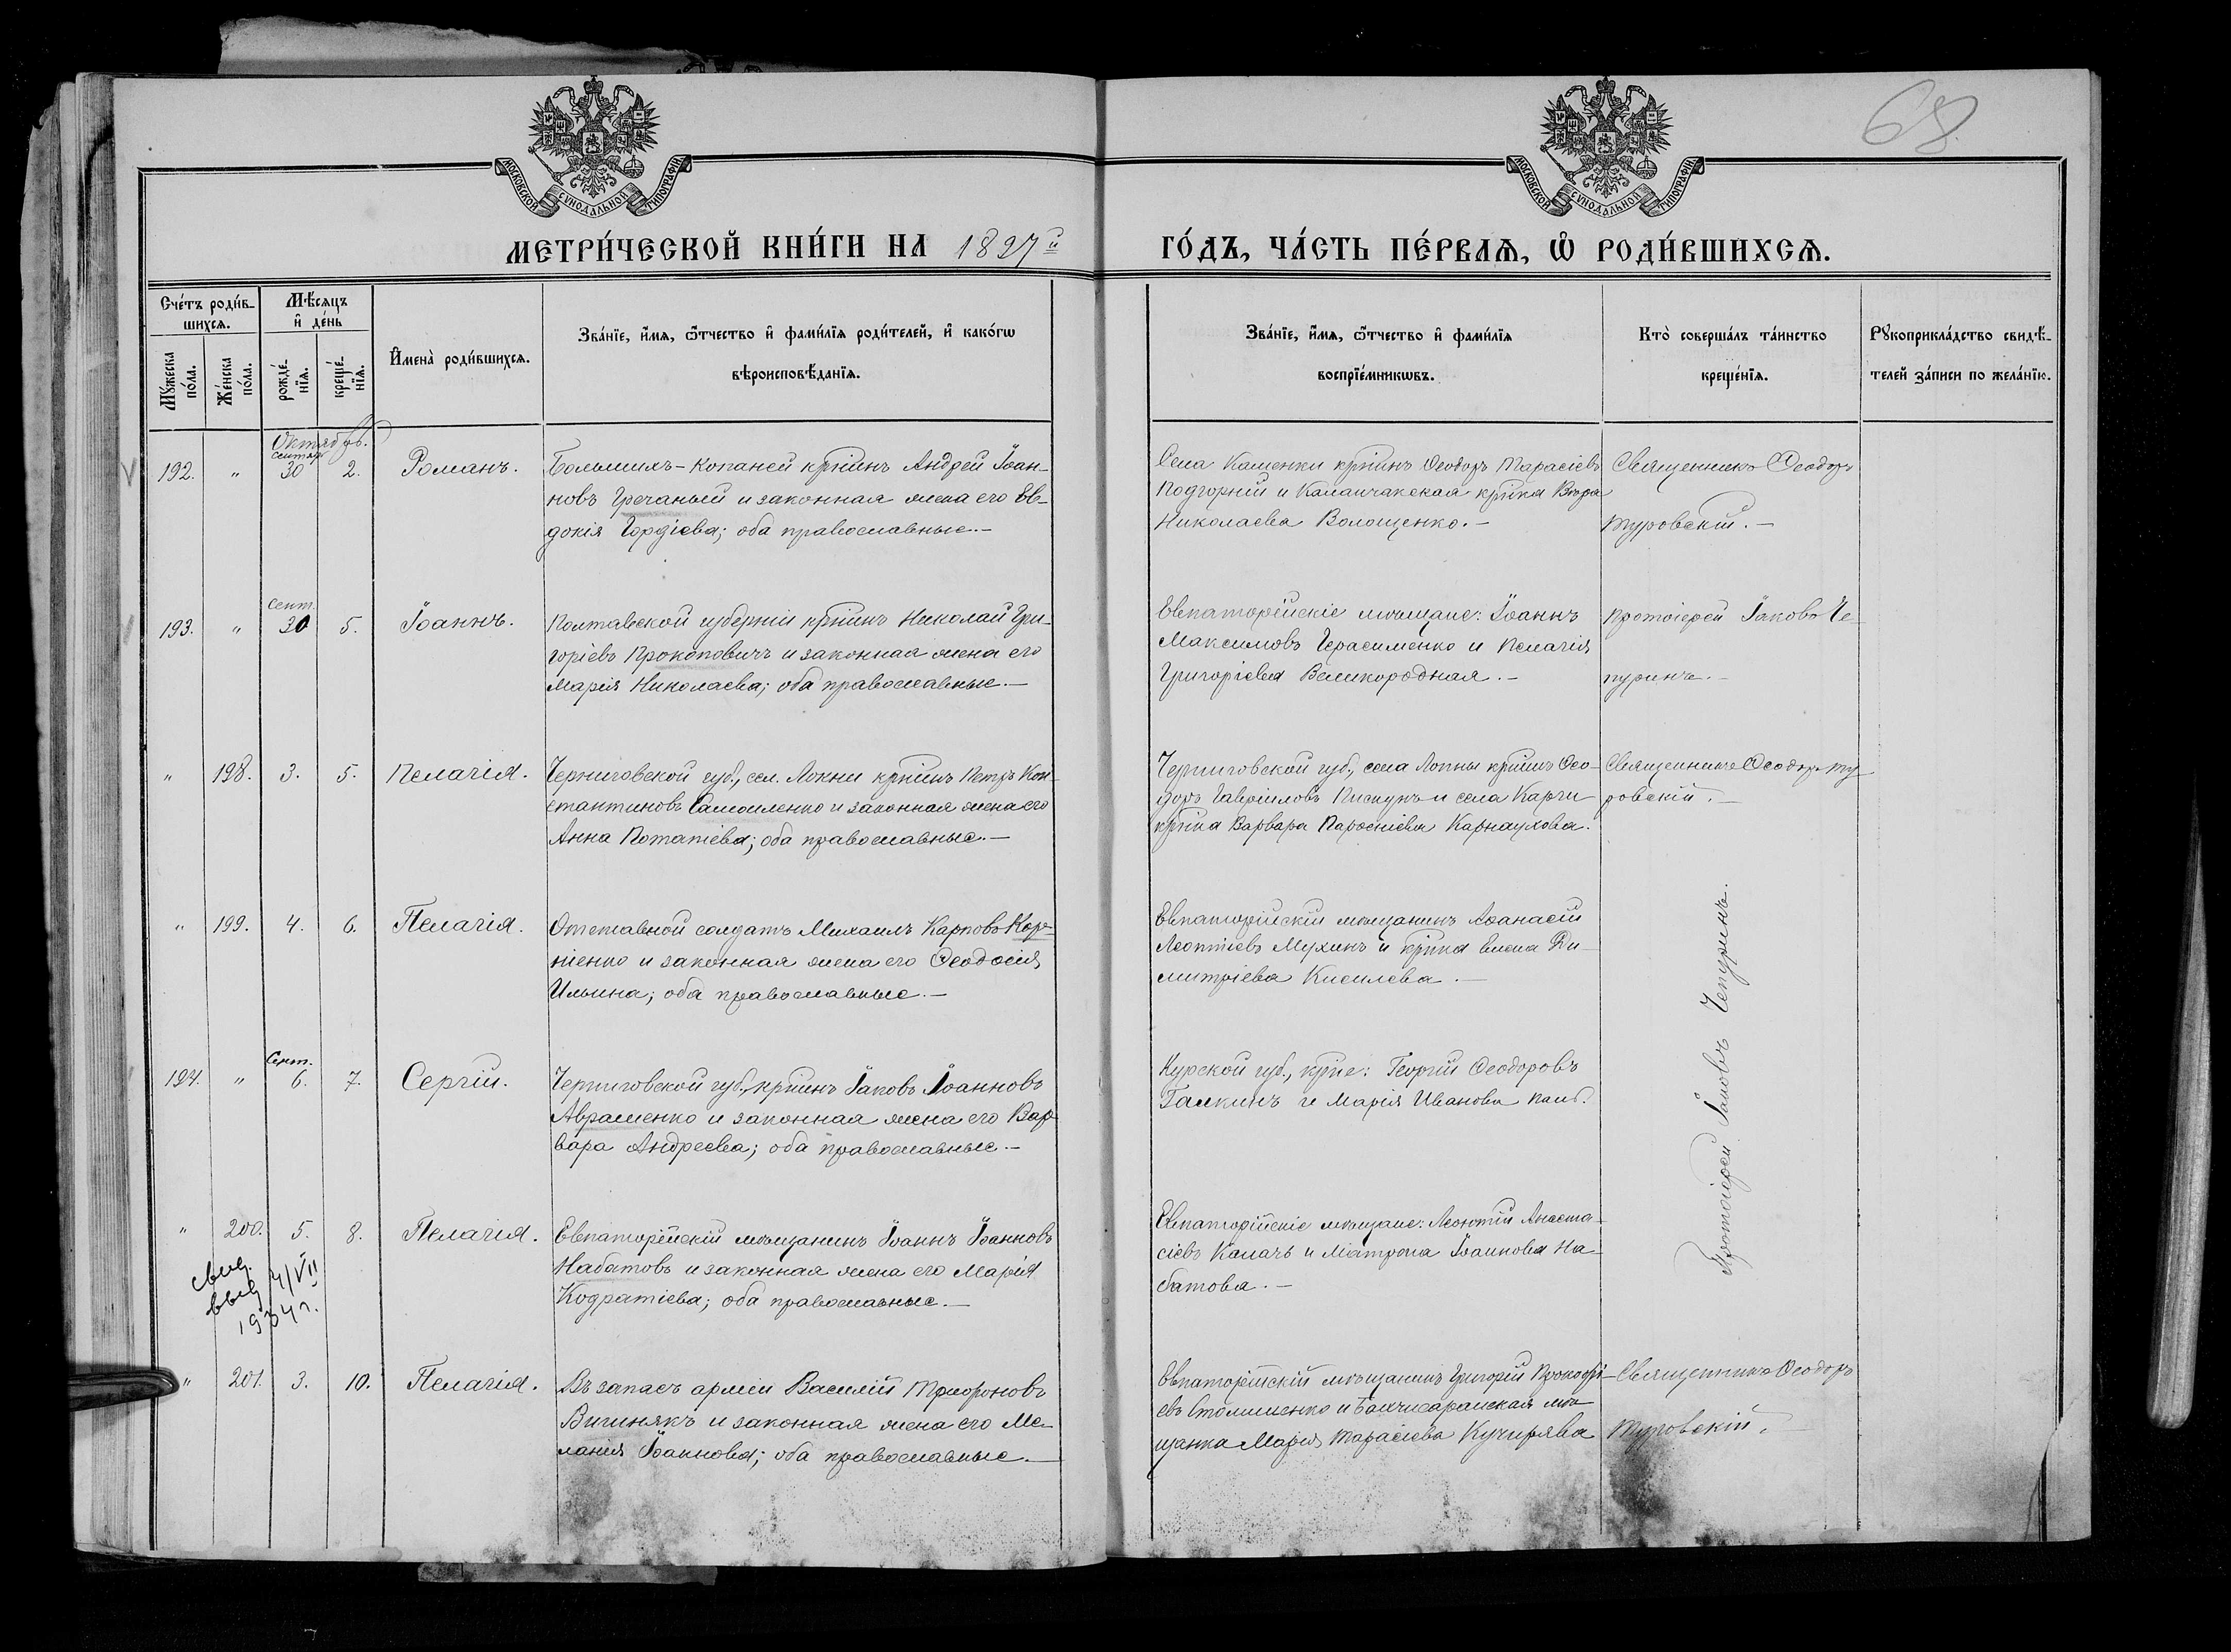 68.
МОСКОВСКОЙ СУНОДАЛЬНОЙ ТИПОГРАФІИ
МОСКОВСКОЙ СУНОДАЛЬНОЙ ТИПОГРАФІИ
МЕТРИ́ЧЕСКОЙ КНИ́ГИ НА 1897й ГО́ДЪ, ЧА́СТЬ ПЕ́РВАѦ, Ѡ҆ РОДИ́ВШИХСѦ.
Сче́тъ роди́в-
шихсѧ.
Мꙋжеска по́ла.
Же́нска по́ла.
Мѣ́сѧцъ
и҆ де́нь
рожде́-
нїѧ.
креще́-
нїѧ.
И҆мена̀ роди́вшихсѧ.
Зва́нїе, и҆́мѧ, ѻ҆́тчество и҆ фами́лїѧ роди́телей, и҆ како́гѡ
вѣроисповѣ́данїѧ.
Зва́нїе, и҆́мѧ, ѻ҆́тчество и҆ фами́лїѧ
воспрїе́мникѡвъ.
Кто̀ соверша́лъ та́инство
креще́нїѧ.
Рꙋкоприкла́дство свидѣ́-
телей за́писи по жела́нїю.
Октябрь.
192. " сентяр 30 2. Романъ.
Большихъ-Копаней крнинъ Андрей Іоан-
новъ Гречаный и законная жена его Ев-
докія Гордіева; оба православные.-
Села Каменки крнинъ Ѳеодоръ Тарасіевъ
Подгорній и Каланчакская крнка Вѣра
Николаева Волощенко.-
Священникъ Ѳеодоръ
Туровскій.-
193. " сент. 30 5. Іоаннъ.
Полтавской губерніи крнинъ Николай Гри-
горіевъ Прокоповичъ и законная жена его
Марія Николаева; оба православные.-
Евпаторійскіе мѣщане: Іоаннъ
Максимовъ Герасименко и Пелагія
Григоріева Великородная.-
Протоіерей Іаковъ Че-
пуринъ.-
" 198. 3. 5. Пелагія.
Черниговской губ., сел. Локни крнинъ Петръ Кон-
стантиновъ Самоиленко и законная жена его
Анна Потапіева; оба православные.-
Черниговской губ., села Локны крнинъ Ѳео-
доръ Гавріиловъ Пискунъ и села
крнка Варвара Парѳеніева Карнаухова.
Священникъ Ѳеодоръ Ту-
ровскій.-
" 199. 4. 6. Пелагія.
Отставной солдатъ Михаилъ Карповъ Кор-
ніенко и законная жена его Ѳеодосія
Ильина; оба православные.-
Евпаторійскій мѣщанинъ Аѳанасій
Леонтіевъ Мухинъ и крнка Елена Ди-
митріева Киселева.-
Протоіерей Іаковъ Чепуринъ.
194. " Сент. 6. 7. Сергій.
Черниговской губ., крнинъ Іаковъ Іоанновъ
Авраменко и законная жена его Вар-
вара Андреева; оба православные.-
Курской губ., крне: Георгій Ѳеодоровъ
Галкинъ и Марія Иванова
" 200. 5. 8. Пелагія.
Евпаторійскій мѣщанинъ Іоаннъ Іоанновъ
Набатовъ и законная жена его Марія
Кодратіева; оба православные.-
Евпаторійскіе мѣщане: Леонтій Анаста-
сіевъ Калачъ и Матрона Іоаннова На-
батова.-
свид.
выд 4/VII
1934 г.
" 201. 3. 10. Пелагія.
Въ запасѣ арміи Василій Трифоновъ
Вигинякъ и законная жена его Ме-
ланія Іоаннова; оба православные.-
Евпаторійскій мѣщанинъ Григорій Прокофі-
евъ и Бахчисарайская мѣ-
щанка Марія Тарасіева Кучирява
Священникъ Ѳеодоръ
Туровскій.